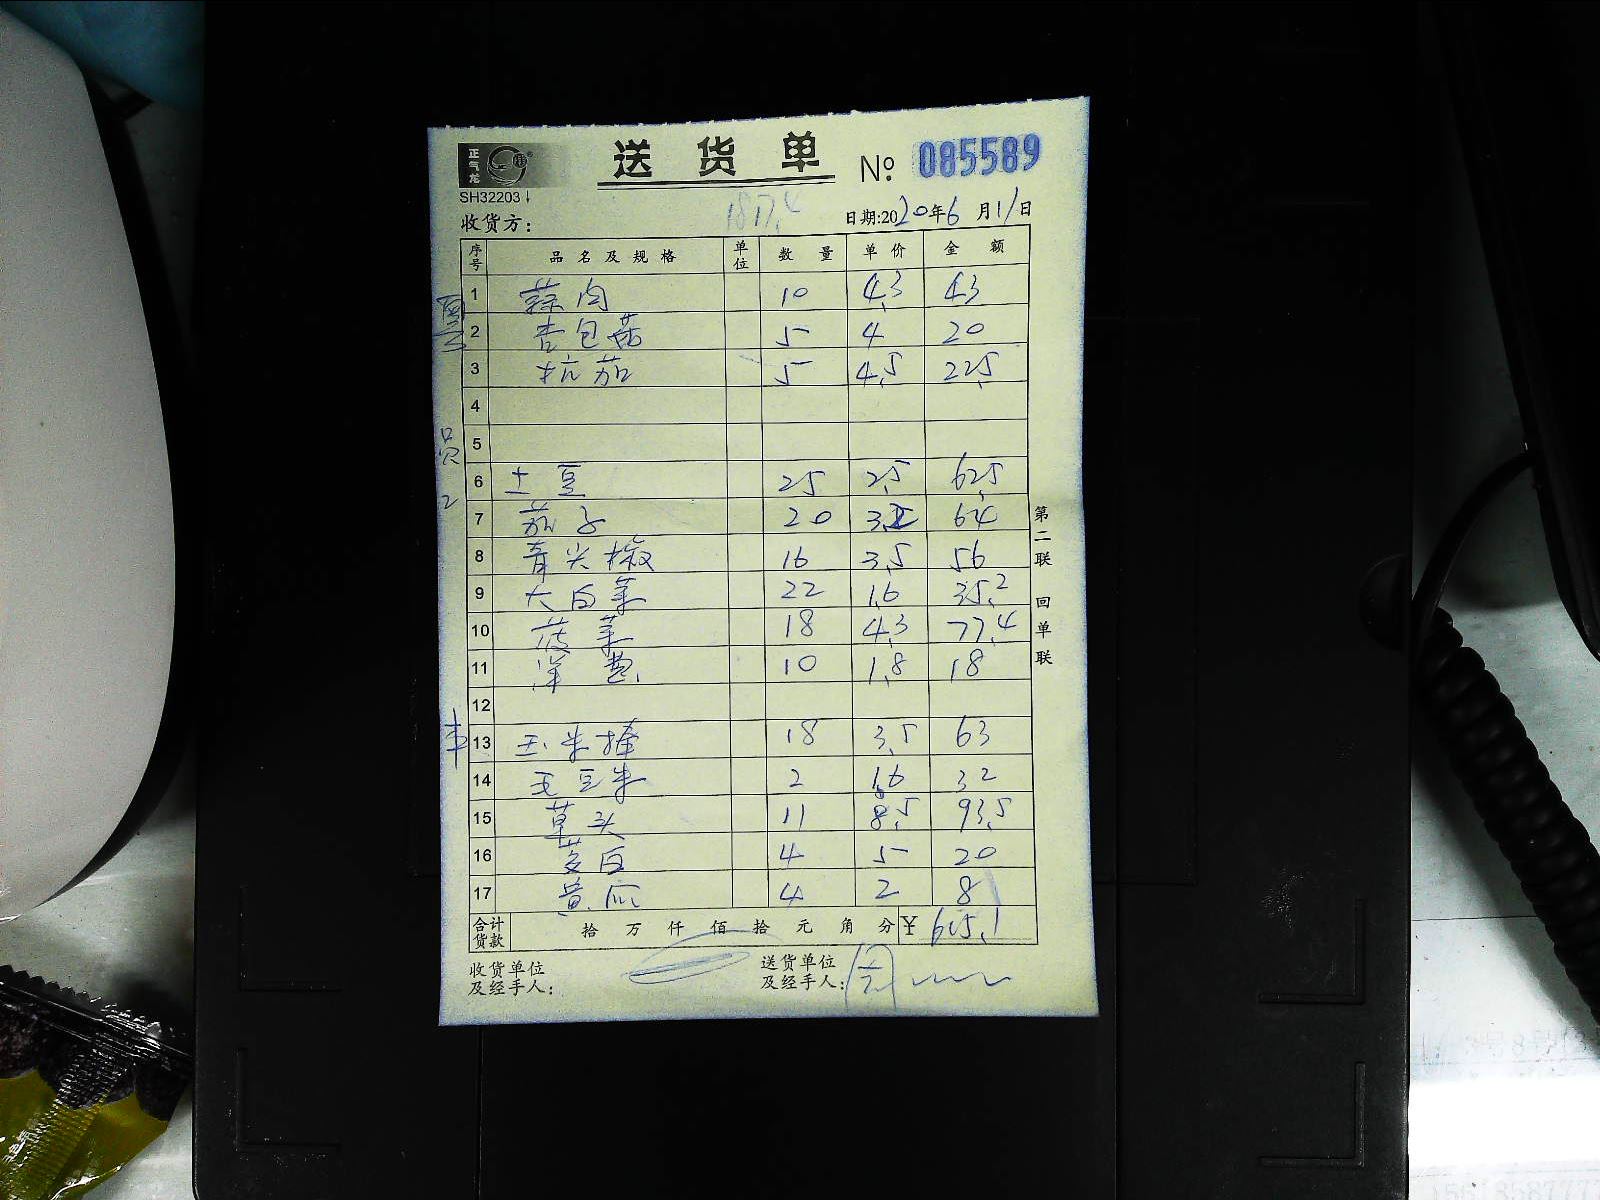 正气龙
送货单 No: 085589
SH32203
1817.4
收货方: 日期:2020年6月11日
序号 品名及规格 单位 数量 单价 金额
1 蒜肉 10 4.3 43
2 杏包菇 5 4 20
3 杭茄 5 4.5 22.5
4
5
6 土豆 25 2.5 62.5
7 茄子 20 3.2 64
8 青尖椒 16 3.5 56
9 大白菜 22 1.6 35.2
10 菠菜 18 4.3 77.4
11 洋 10 1.8 18
12
13 玉米棒 18 3.5 63
14 毛豆米 2 16 32
15 草头 11 8.5 93.5
16 茭白 4 5 20
17 黄 4 2 8
合计货款 拾 万 仟 佰 拾 元 角 分 ¥ 615.1
收货单位及经手人: 送货单位及经手人:
第二联 回单联